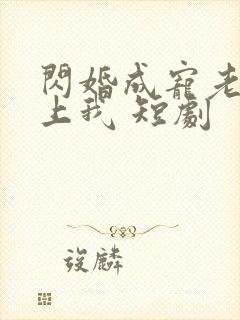 閃婚成寵老
上我 短劇
後麟